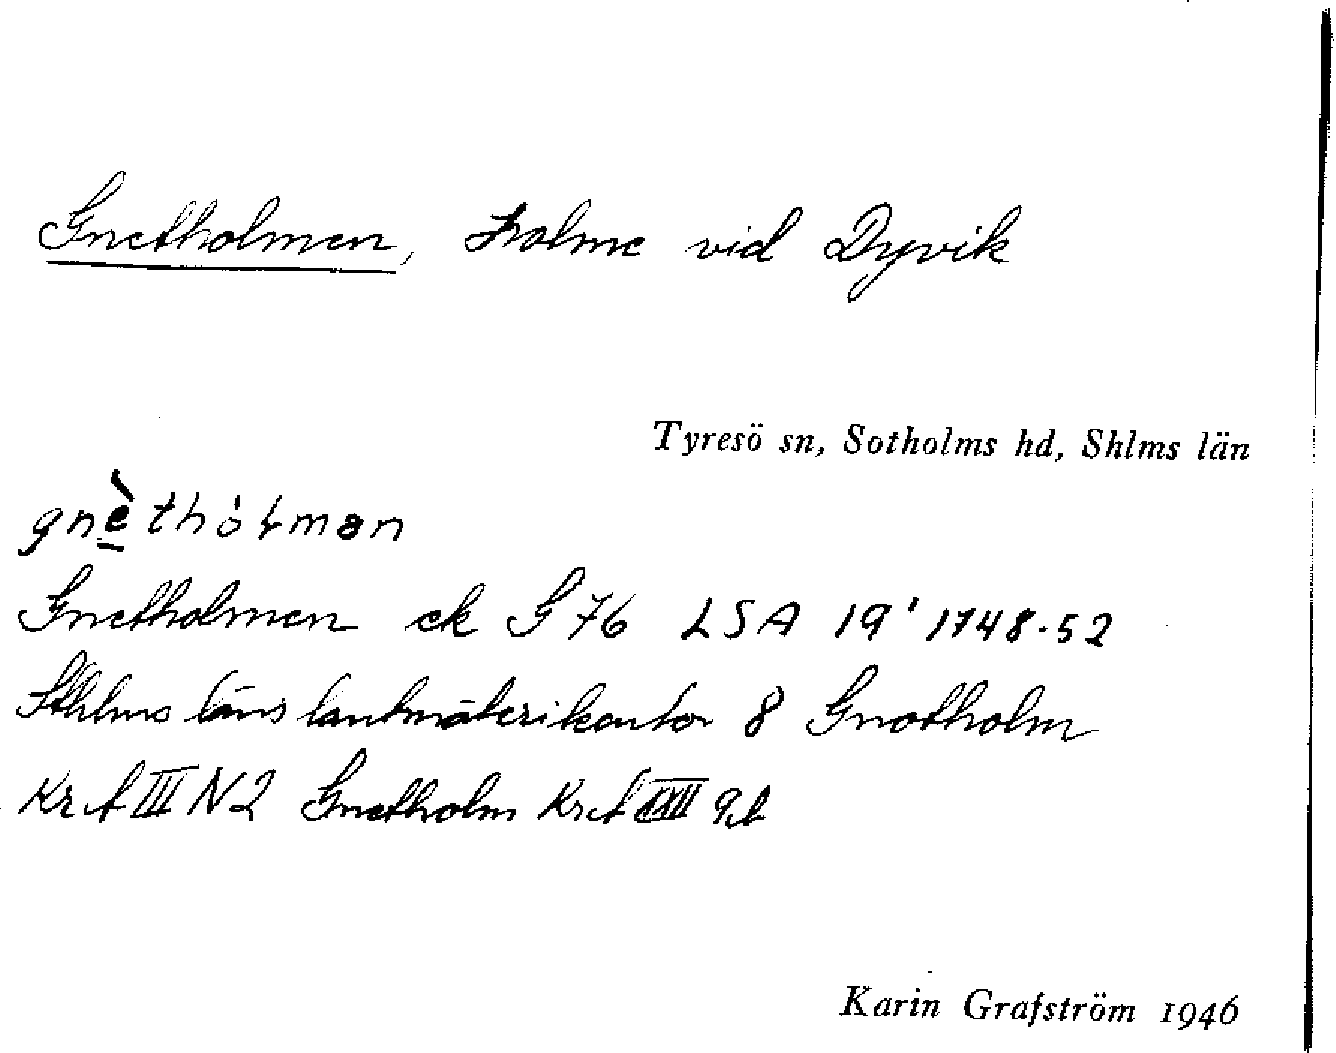 Gnetholmen, holme vid Dyvik
Tyresö sn, Sotholms hd, Shlms län
gnèthólmən
Gnetholmen ek G 76 LSA 19' 1748-52
Sthlms läns lantmäterikontor 8 Gnotholm
KrA III N2 Gnetholm KrA XXII 9b
Karin Grafström 1946